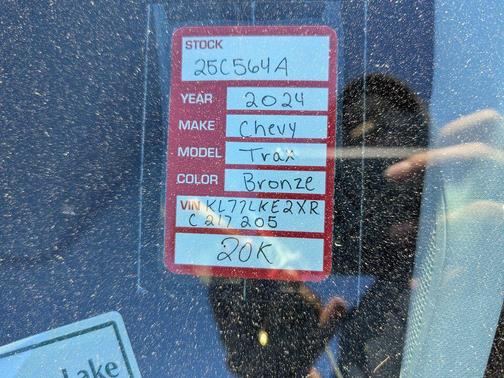 STOCK
25C564A
YEAR 2024
MAKE Chevy
MODEL Trax
COLOR Bronze
VIN KL77LKE2XR
C217205
20K
lake